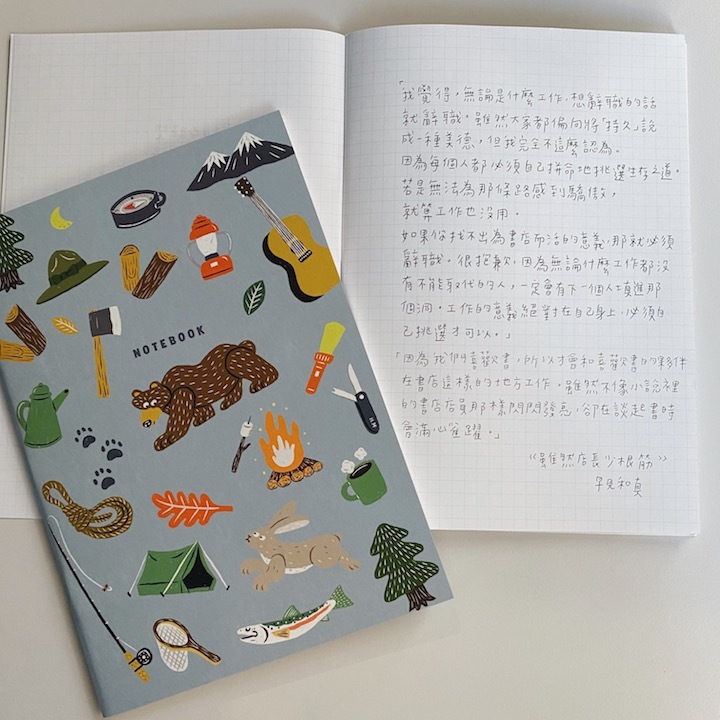 NOTEBOOK
「我覺得，無論是什麼工作，想辭職的話
就辭職。雖然大家都偏向將「持久」說
成一種美德，但我完全不這麼認為。
因為每個人都必須自己拼命地挑選生存之道。
若是無法為那條路感到驕傲，
就算工作也沒用。
如果你找不出為書店而活的意義，那就必須
辭職。很抱歉，因為無論什麼工作都沒
有不能取代的人，一定會有下一個人填進那
個洞。工作的意義絕對在自己身上，必須自
己挑選才可以。」
「因為我們喜歡書，所以才會和喜歡書的夥伴
在書店這樣的地方工作。雖然不像小說裡
的書店店員那樣閃閃發亮，卻在談起書時
會滿心雀躍。」
《雖然店長少根筋》
早見和真